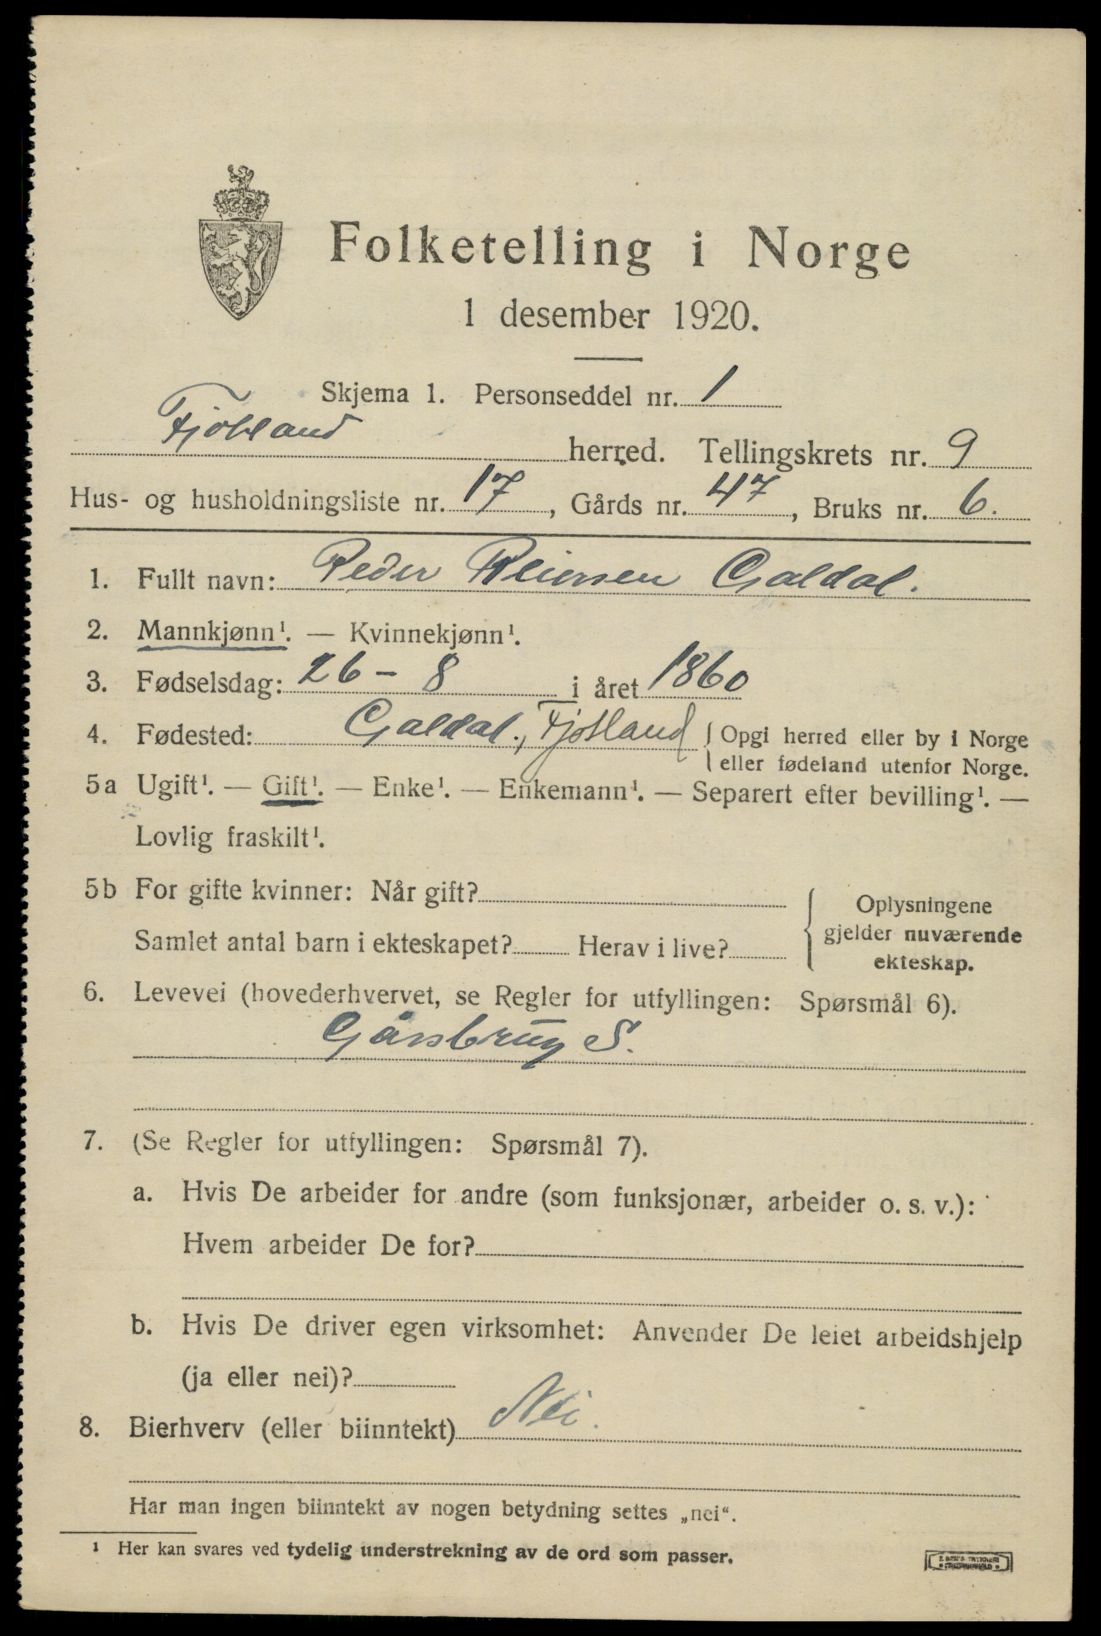 Folketelling i Norge
1 desember 1920.
Skjema 1. Personseddel nr. 1
Fjotland herred. Tellingskrets nr. 9
Hus- og husholdningsliste nr. 17, Gårds nr. 47, Bruks nr. 6.
1. Fullt navn: Peder Reiersen Galdal.
2. Mannkjønn¹. — Kvinnekjønn¹.
3. Fødselsdag: 26 - 8 i året 1860
4. Fødested: Galdal., Fjotland Opgi herred eller by i Norge
eller fødeland utenfor Norge.
5a Ugift¹. — Gift¹. — Enke¹. — Enkemann¹. — Separert efter bevilling¹. —
Lovlig fraskilt¹.
5b For gifte kvinner: Når gift?
Samlet antal barn i ekteskapet? Herav i live?
Oplysningene
gjelder nuværende
ekteskap.
6. Levevei (hovederhvervet, se Regler for utfyllingen: Spørsmål 6).
Gårsbrug S.
7. (Se Regler for utfyllingen: Spørsmål 7).
a. Hvis De arbeider for andre (som funksjonær, arbeider o. s. v.):
Hvem arbeider De for?
b. Hvis De driver egen virksomhet: Anvender De leiet arbeidshjelp
(ja eller nei)?
8. Bierhverv (eller biinntekt) Nei.
Har man ingen biinntekt av nogen betydning settes „nei“.
¹ Her kan svares ved tydelig understrekning av de ord som passer.